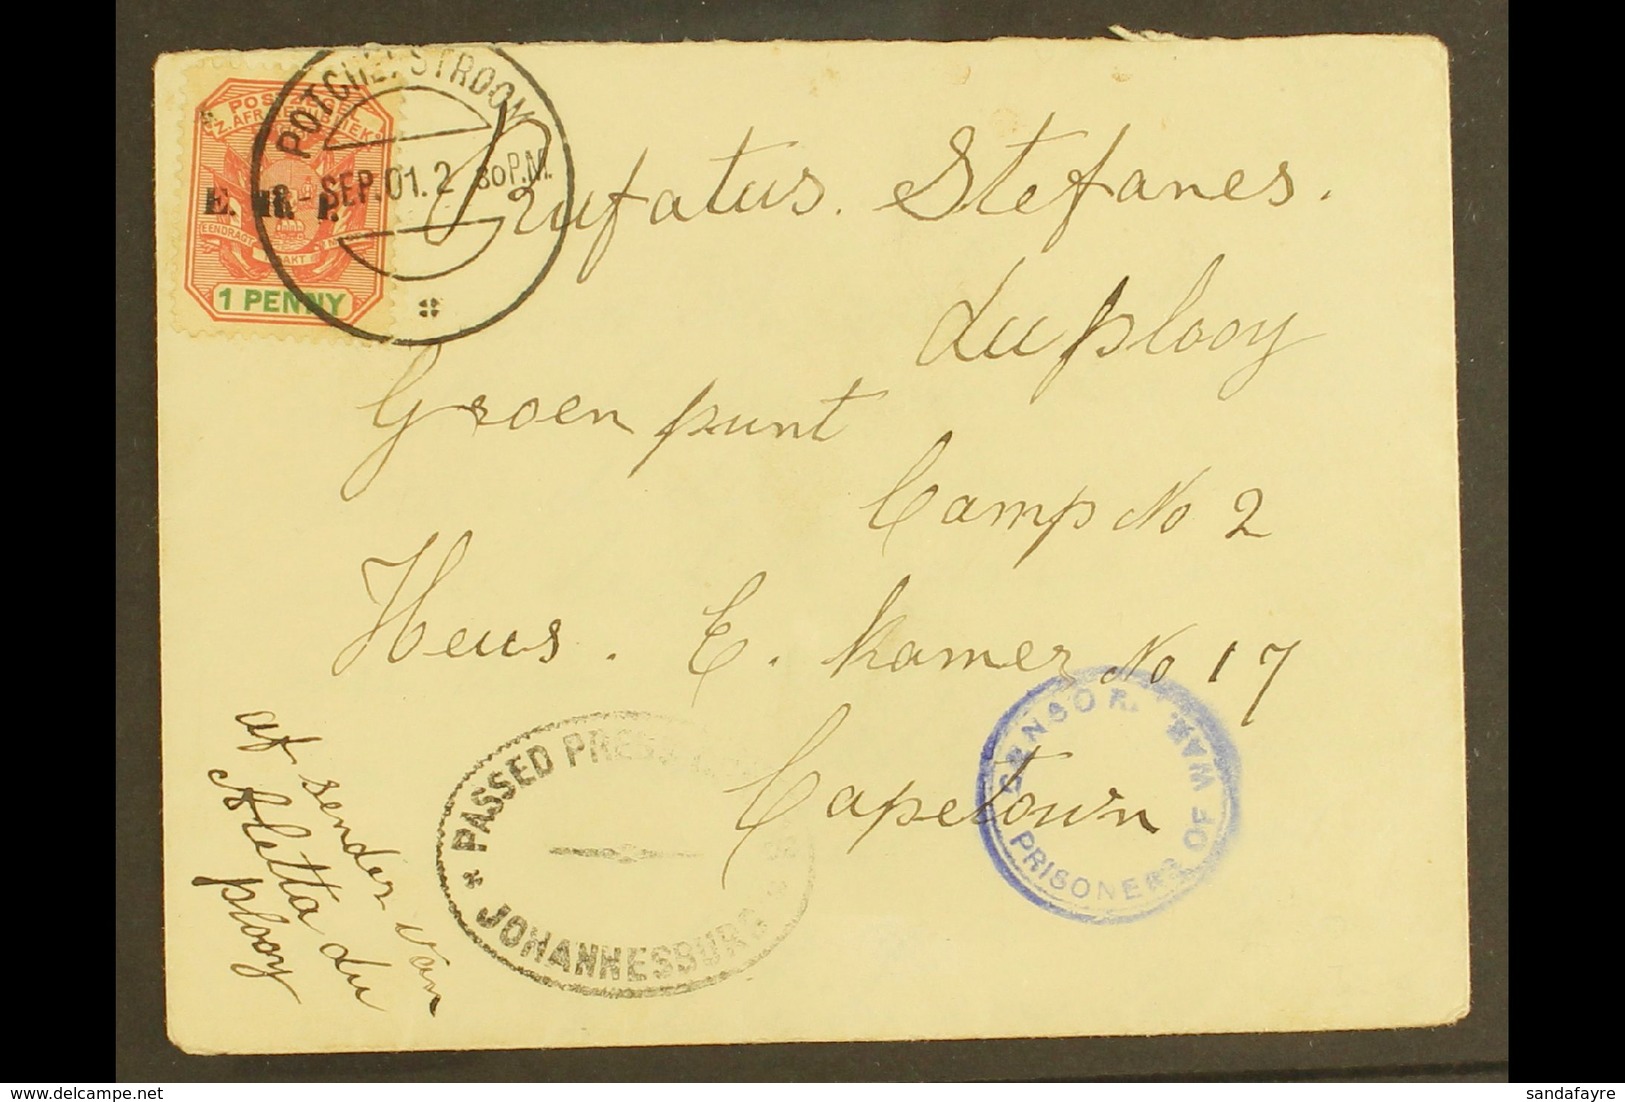 POSTZEGEL
Z. AFR. REPUBLIEK
E. R. I.
EENDRAGT MAAKT
1 PENNY
POTCHEFSTROOM
SEP. 01. 2 30 P.M.
Stefanes.
du plooy
Groen punt
Camp No 2
Heus. E. Kamer No 17
Capetown
CENSOR.
PRISONERS OF WAR.
PASSED PRESS
JOHANNESBURG
af sender van
Aletta du
plooy
sandafayre